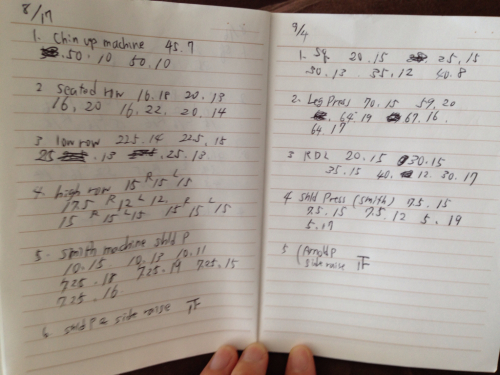 8/17
1. Chin up machine 45.7
50.10 50.10
2 Seated row 16.18 20.13
16.20 16.22 20.14
3 low row 225.14 225.15
25 .13 .25.13
4. high row 15 R 15 L 15
17.5 R 12 L 12
15 R 15 L 15 15 R 15 L 15
5. Smith machine shld P
10.15 10.13 10.11
7.25.18 7.25.19 7.25.15
7.25.16
6 shld P & side raise 正
9/4
1. Sq 20.15 25.15
30.13 35.12 40.8
2. Leg Press 70.15 59.20
64.19 67.16
64.17
3 RDL 20.15 30.15
35.15 40. 12 30.17
4 shld Press (smith) 7.5.15
7.5.15 7.5.12 5.19
5.17
5 (Arnold P
side raise 正